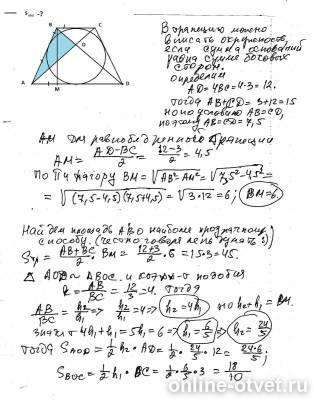 S_ABO - ?
B
C
O
A
M
D
В трапецию можно
вписать окружность,
если сумма оснований
равна сумме боковых
сторон.
определим
AD=4BC=4·3=12.
тогда AB+CD=3+12=15
но по условию AB=CD,
поэтому AB=CD=7,5
AM для равнобедренной трапеции
AM = (AD-BC)/2 = (12-3)/2 = 4,5
По Пифагору BM = √(AB²-AM²) = √(7,5²-4,5²) =
= √((7,5-4,5)(7,5+4,5)) = √(3·12) = 6; BM=6
Найдем площадь ABO наиболее
способом. (честно говоря лень думать :))
Sтр = (AB+BC)/2 · BM = (12+3)/2 · 6 = 15·3=45.
△ AOD ~ △BOC. и коэф-т подобия
k = AB/BC = 12/3 = 4, тогда
AB/BC = h₂/h₁ ; h₂/h₁ = 4 ⇒ h₂=4h₁ но h₂+h₁=BM.
значит 4h₁+h₁=5h₁=6 ⇒ h₁=6/5 ⇒ h₂=24/5
тогда S_AOD = ½ h₂·AD = ½·24/5·12 = 24·6/5;
S_BOC = ½ h₁·BC = ½·6/5·3 = 18/10
online-otvet.ru